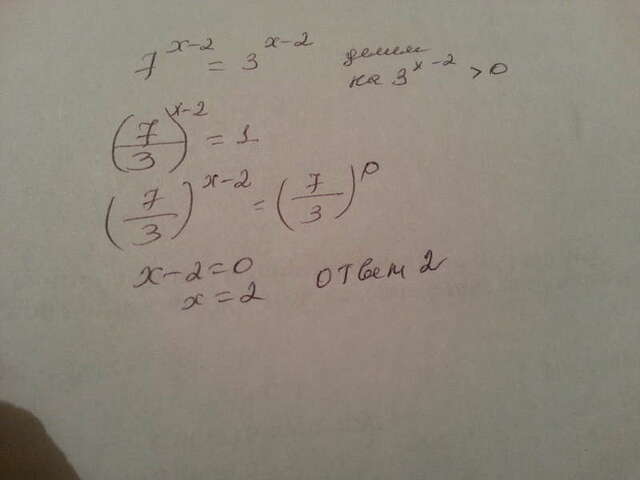 7^{x-2} = 3^{x-2} делим на 3^{x-2} > 0
(7/3)^{x-2} = 1
(7/3)^{x-2} = (7/3)^0
x-2=0
x=2 ответ 2